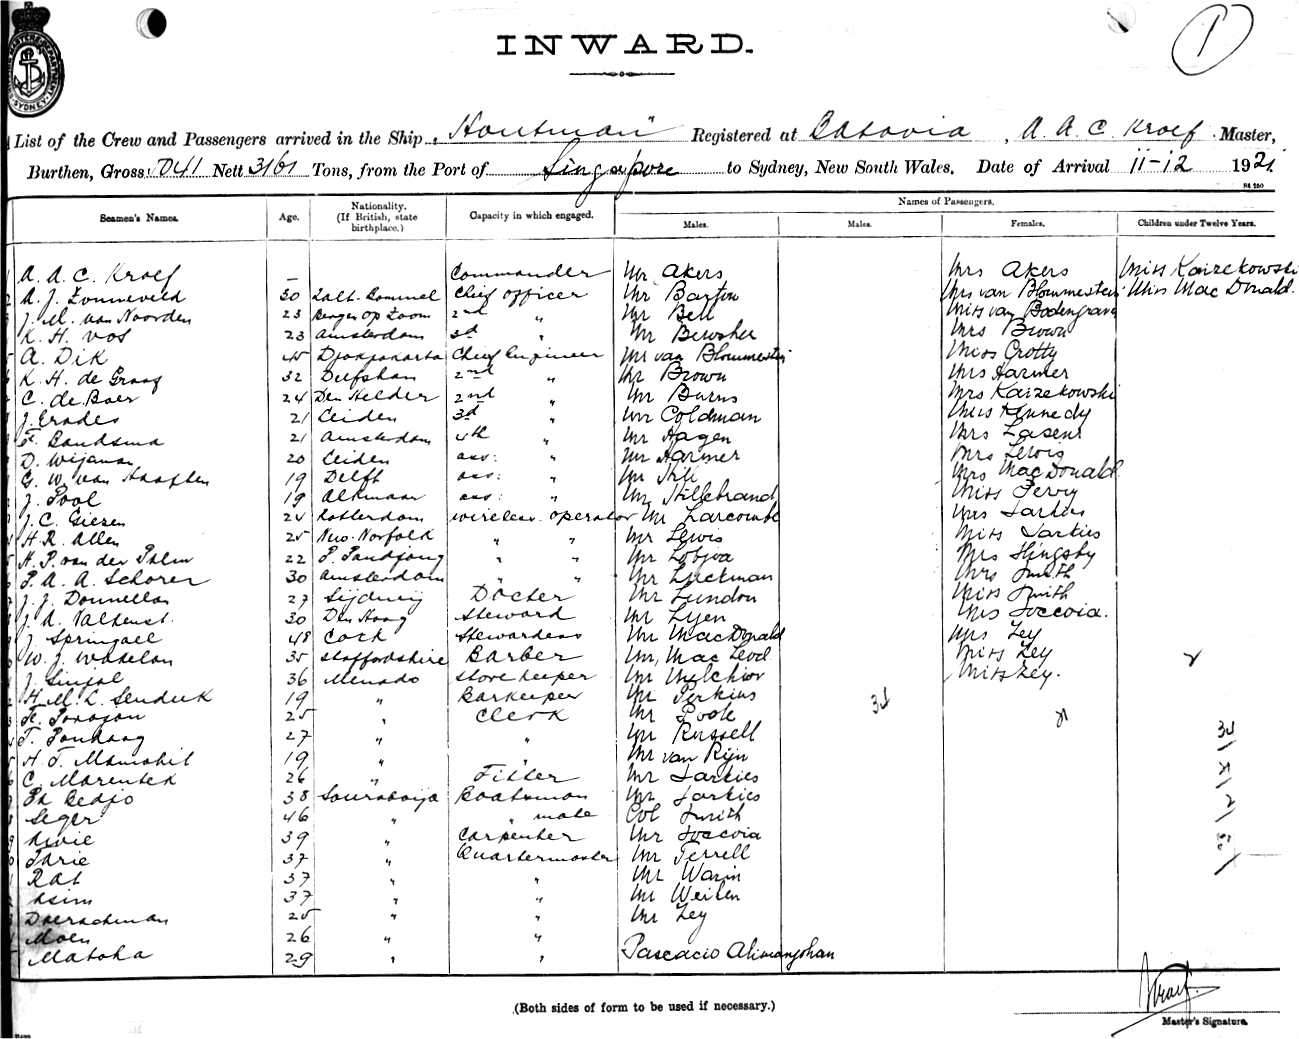 SYDNEY
INWARD.
List of the Crew and Passengers arrived in the Ship, "Houtman" Registered at Batavia, A. A. C. Kroef Master,
Burthen, Gross 5041 Nett 3161 Tons, from the Port of Singapore to Sydney, New South Wales. Date of Arrival 11-12 1921.
Seamen's Names. Age. Nationality. (If British, state birthplace.) Capacity in which engaged. Names of Passengers.
Males. Males. Females. Children under Twelve Years.
A. A. C. Kroef — Commander Mr Akers Mrs Akers Miss Kaizekowski
A. J. Zonneveld 30 Zalt. Bommel Chief officer Mr Barton Mrs van Blommestein Miss MacDonald.
J. M. van Noorden 23 Bergen op Zoom 2nd " Mr Bell Miss van Bodengrave
K. H. Vos 23 Amsterdam 3d " Mr Bewsher Mrs Brown
A. Dik 45 Djokjakarta Chief Engineer Mr van Blommestein Miss Crotty
K. H. de Graaf 32 2nd " Mr Brown Mrs Harmer
C. de Boer 24 Den Helder 2nd " Mr Burns Mrs Kaizekowski
J. Erades 21 Leiden 3d " Mr Coldman Miss Kennedy
Bandsma 21 Amsterdam 4th " Mr Hagen Mrs
D. Wijaman 20 Leiden ass: " Mr Harmer Mrs Lewis
G. W. van Haaften 19 Delft ass: " Mr Hill Mrs MacDonald
J. Pool 19 Alkmaar ass: " Mr Hillebrand Miss Perry
J. C. Giezen 24 Rotterdam wireless operator Mr Larcombe Mrs Sarkies
H. R. Allen 25 New. Norfolk " " Mr Lewis Miss Sarkies
H. P. van der Palm 22 P. Pandjang " " Mr Lobjoa Mrs Slingsby
P. A. A. Schorer 30 Amsterdam " " Mr Luckman Mrs Smith
J. J. Donnellan 27 Sydney Docter Mr Lundon Miss Smith
J. A. Valkenst. 30 Den Haag Steward Mr Lyen Mrs Soccoia.
J. Springall 48 Cork Stewardess Mr MacDonald Mrs Zey
W. J. Wakelan 35 Staffordshire Barber Mr MacLeod Miss Zey
J. Sinjal 36 Menado Storekeeper Mr Melchior Miss Zey.
H. M. L. Senduk 19 " Barkeeper Mr Perkins
25 " Clerk Mr Poole
T. Pandaag 27 " " Mr Russell
H. T. Mamahit 19 " " Mr van Rijn
C. Marentek 26 " Fitter Mr Sarkies
Pa Bedjo 38 Sourabaija Boatsman Mr Sarkies
Seger 46 " " mate Col Smith
39 " Carpenter Mr Soccoia
Parie 37 " Quartermaster Mr Terrell
Rat 37 " " Mr Warin
Asim 37 " " Mr Weilen
Doerachman 25 " " Mr Zey
Moen 26 " "
Matoha 29 " " Pascacio Alimangohan
(Both sides of form to be used if necessary.)
Kroef.
Master's Signature.